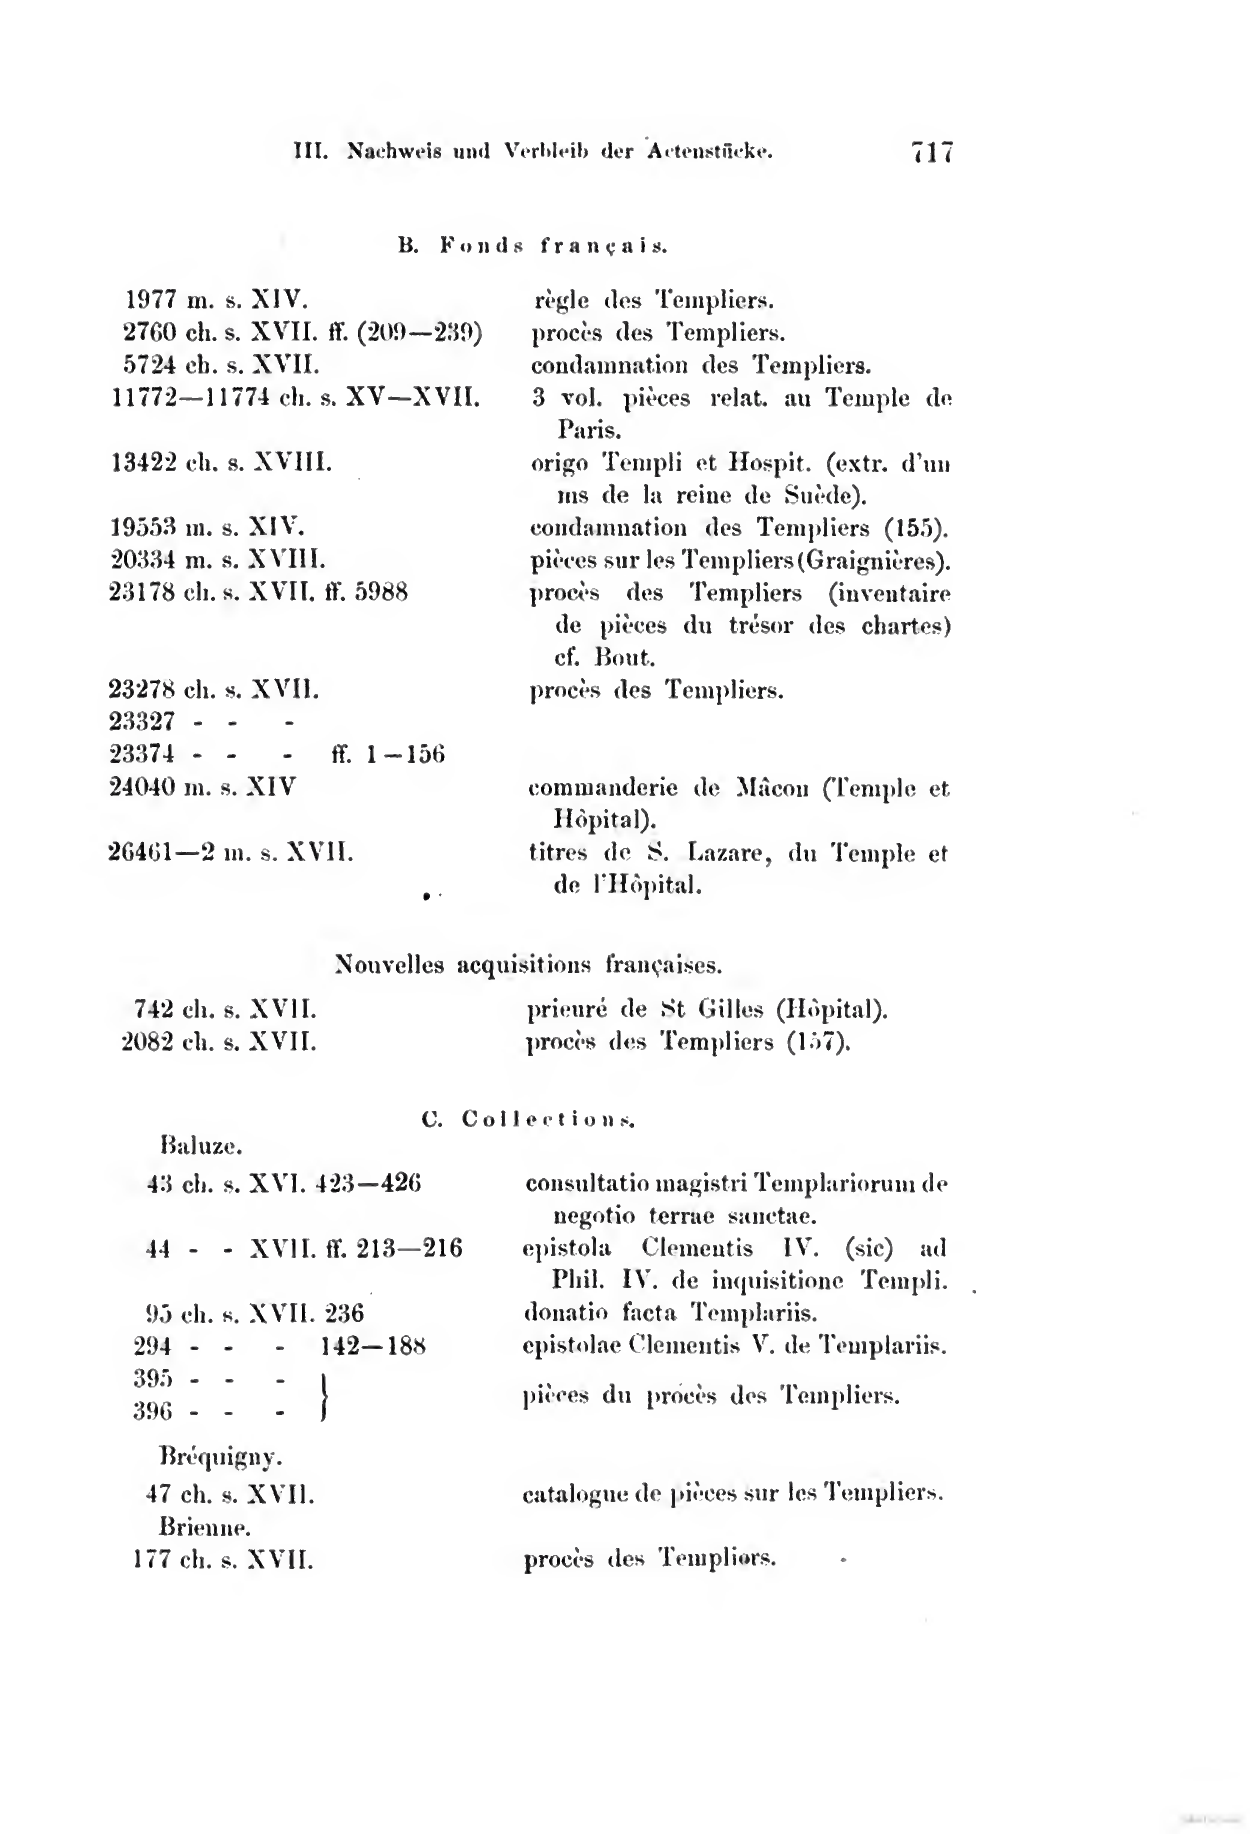 III. Nachweis und Verbleib der Actenstücke. 717
B. Fonds français.
1977 m. s. XIV. règle des Templiers.
2760 ch. s. XVII. ff. (209—239) procès des Templiers.
5724 ch. s. XVII. condamnation des Templiers.
11772—11774 ch. s. XV—XVII. 3 vol. pièces relat. au Temple de
Paris.
13422 ch. s. XVIII. origo Templi et Hospit. (extr. d'un
ms de la reine de Suède).
19553 m. s. XIV. condamnation des Templiers (155).
20334 m. s. XVIII. pièces sur les Templiers (Graignières).
23178 ch. s. XVII. ff. 5988 procès des Templiers (inventaire
de pièces du trésor des chartes)
cf. Bout.
23278 ch. s. XVII. procès des Templiers.
23327 - - -
23374 - - - ff. 1—156
24040 m. s. XIV commanderie de Mâcon (Temple et
Hôpital).
26461—2 m. s. XVII. titres de S. Lazare, du Temple et
de l'Hôpital.
Nouvelles acquisitions françaises.
742 ch. s. XVII. prieuré de St Gilles (Hôpital).
2082 ch. s. XVII. procès des Templiers (157).
C. Collections.
Baluze.
43 ch. s. XVI. 423—426 consultatio magistri Templariorum de
negotio terrae sanctae.
44 - - XVII. ff. 213—216 epistola Clementis IV. (sic) ad
Phil. IV. de inquisitione Templi.
95 ch. s. XVII. 236 donatio facta Templariis.
294 - - - 142—188 epistolae Clementis V. de Templariis.
395 - - -
396 - - - } pièces du procès des Templiers.
Bréquigny.
47 ch. s. XVII. catalogue de pièces sur les Templiers.
Brienne.
177 ch. s. XVII. procès des Templiers.